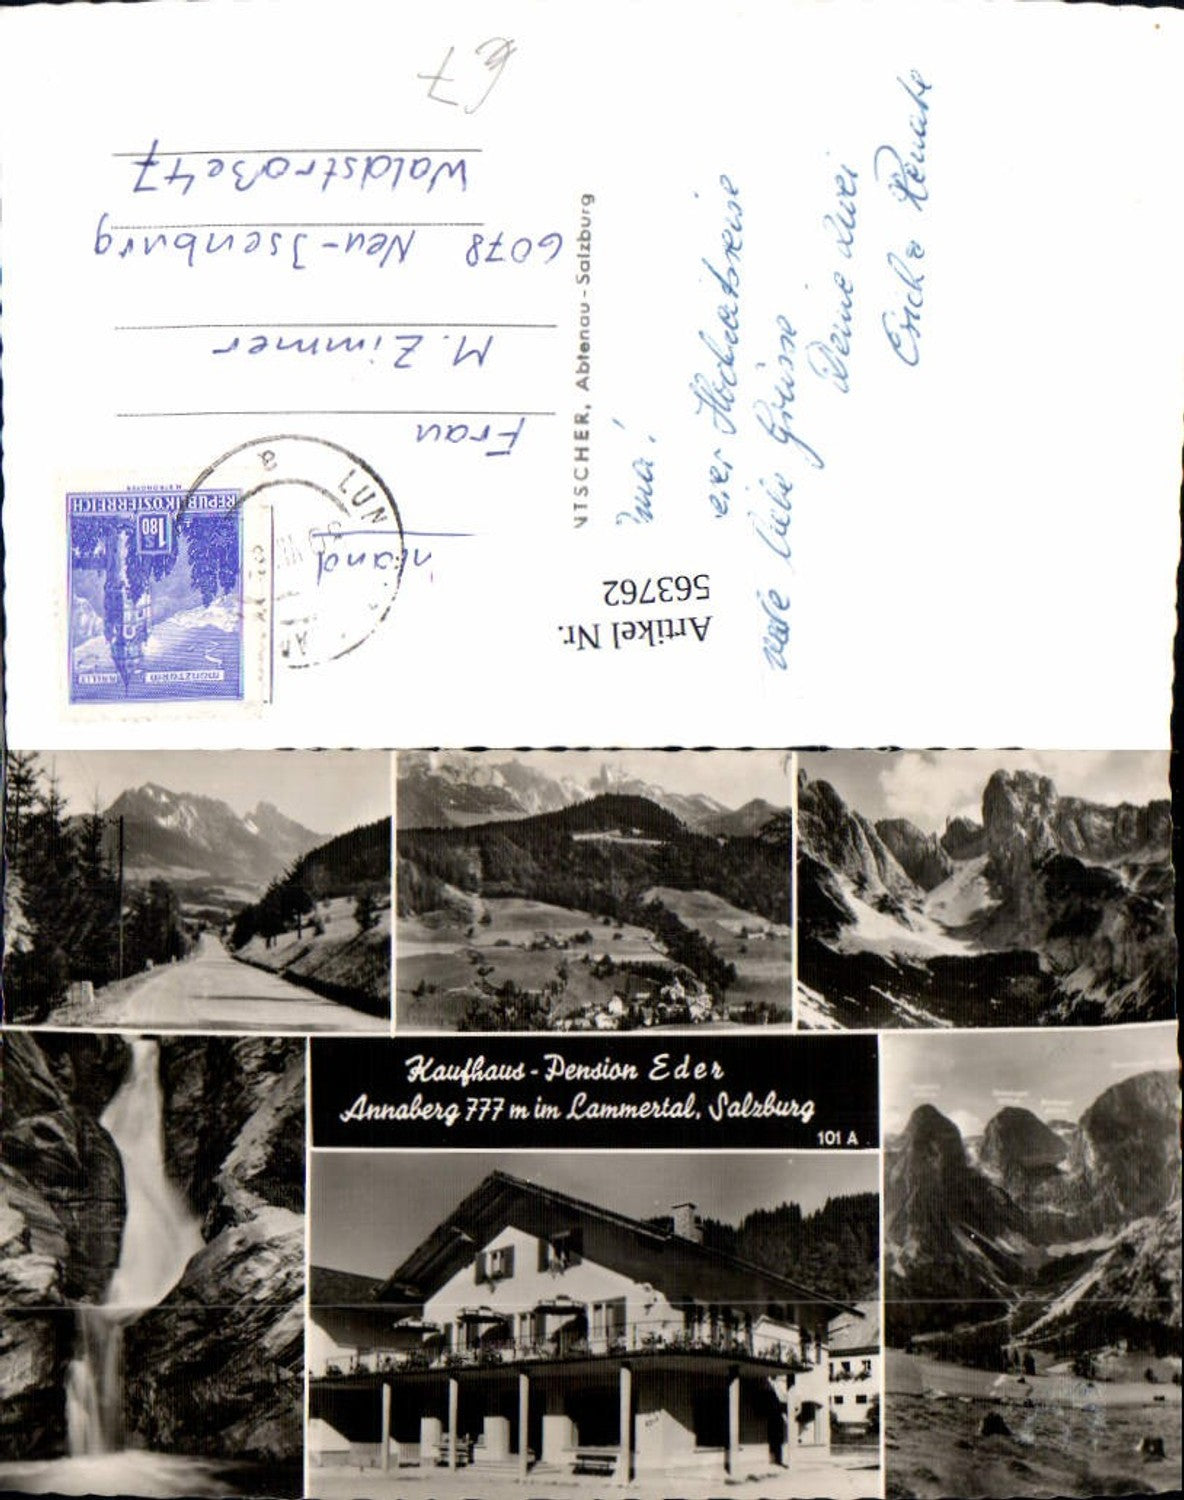 € 7
REPUBLIK ÖSTERREICH
S 1.80
LUN
Frau
M. Zimmer
6078 Neu-Isenburg
Waldstraße 47
NTSCHER, Abtenau-Salzburg
Artikel Nr.
563762
Hochzeitsreise
viele liebe Grüsse
Deine zwei
Erich & Renate
Kaufhaus-Pension Eder
Annaberg 777 m im Lammertal, Salzburg
101 A